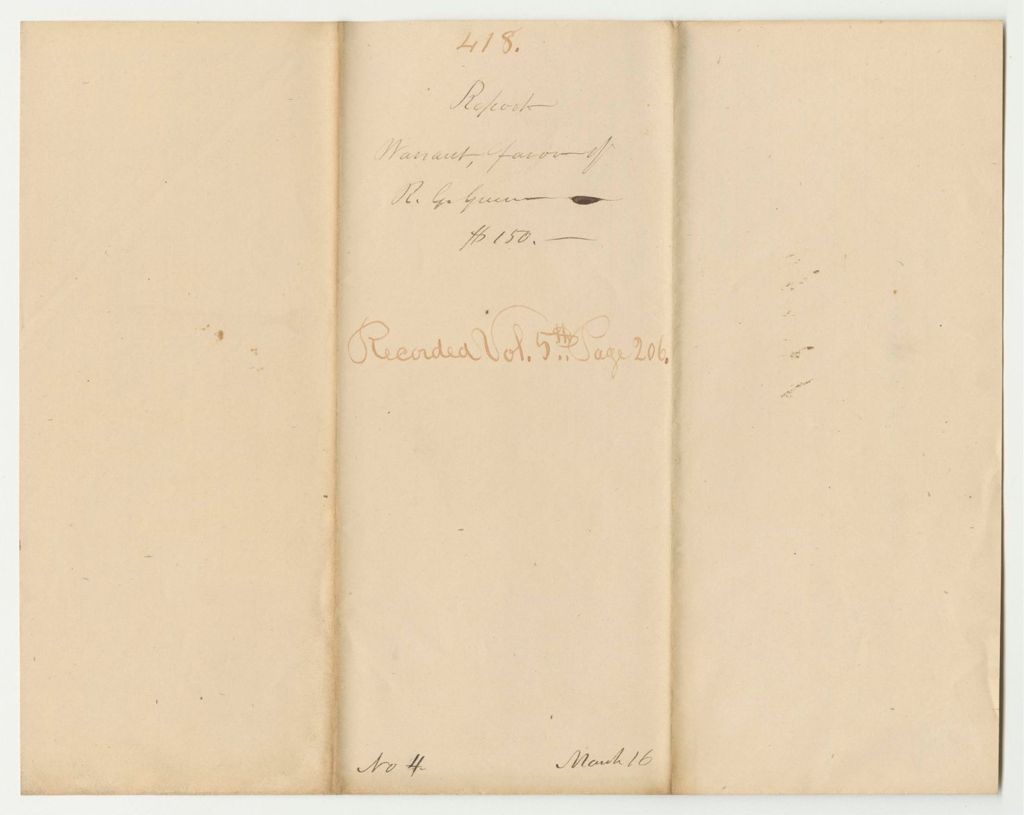 418.
Report
Warrant, favor of
R. G. Green
$150.—
Recorded Vol. 5th. Page 206.
No 4
March 16